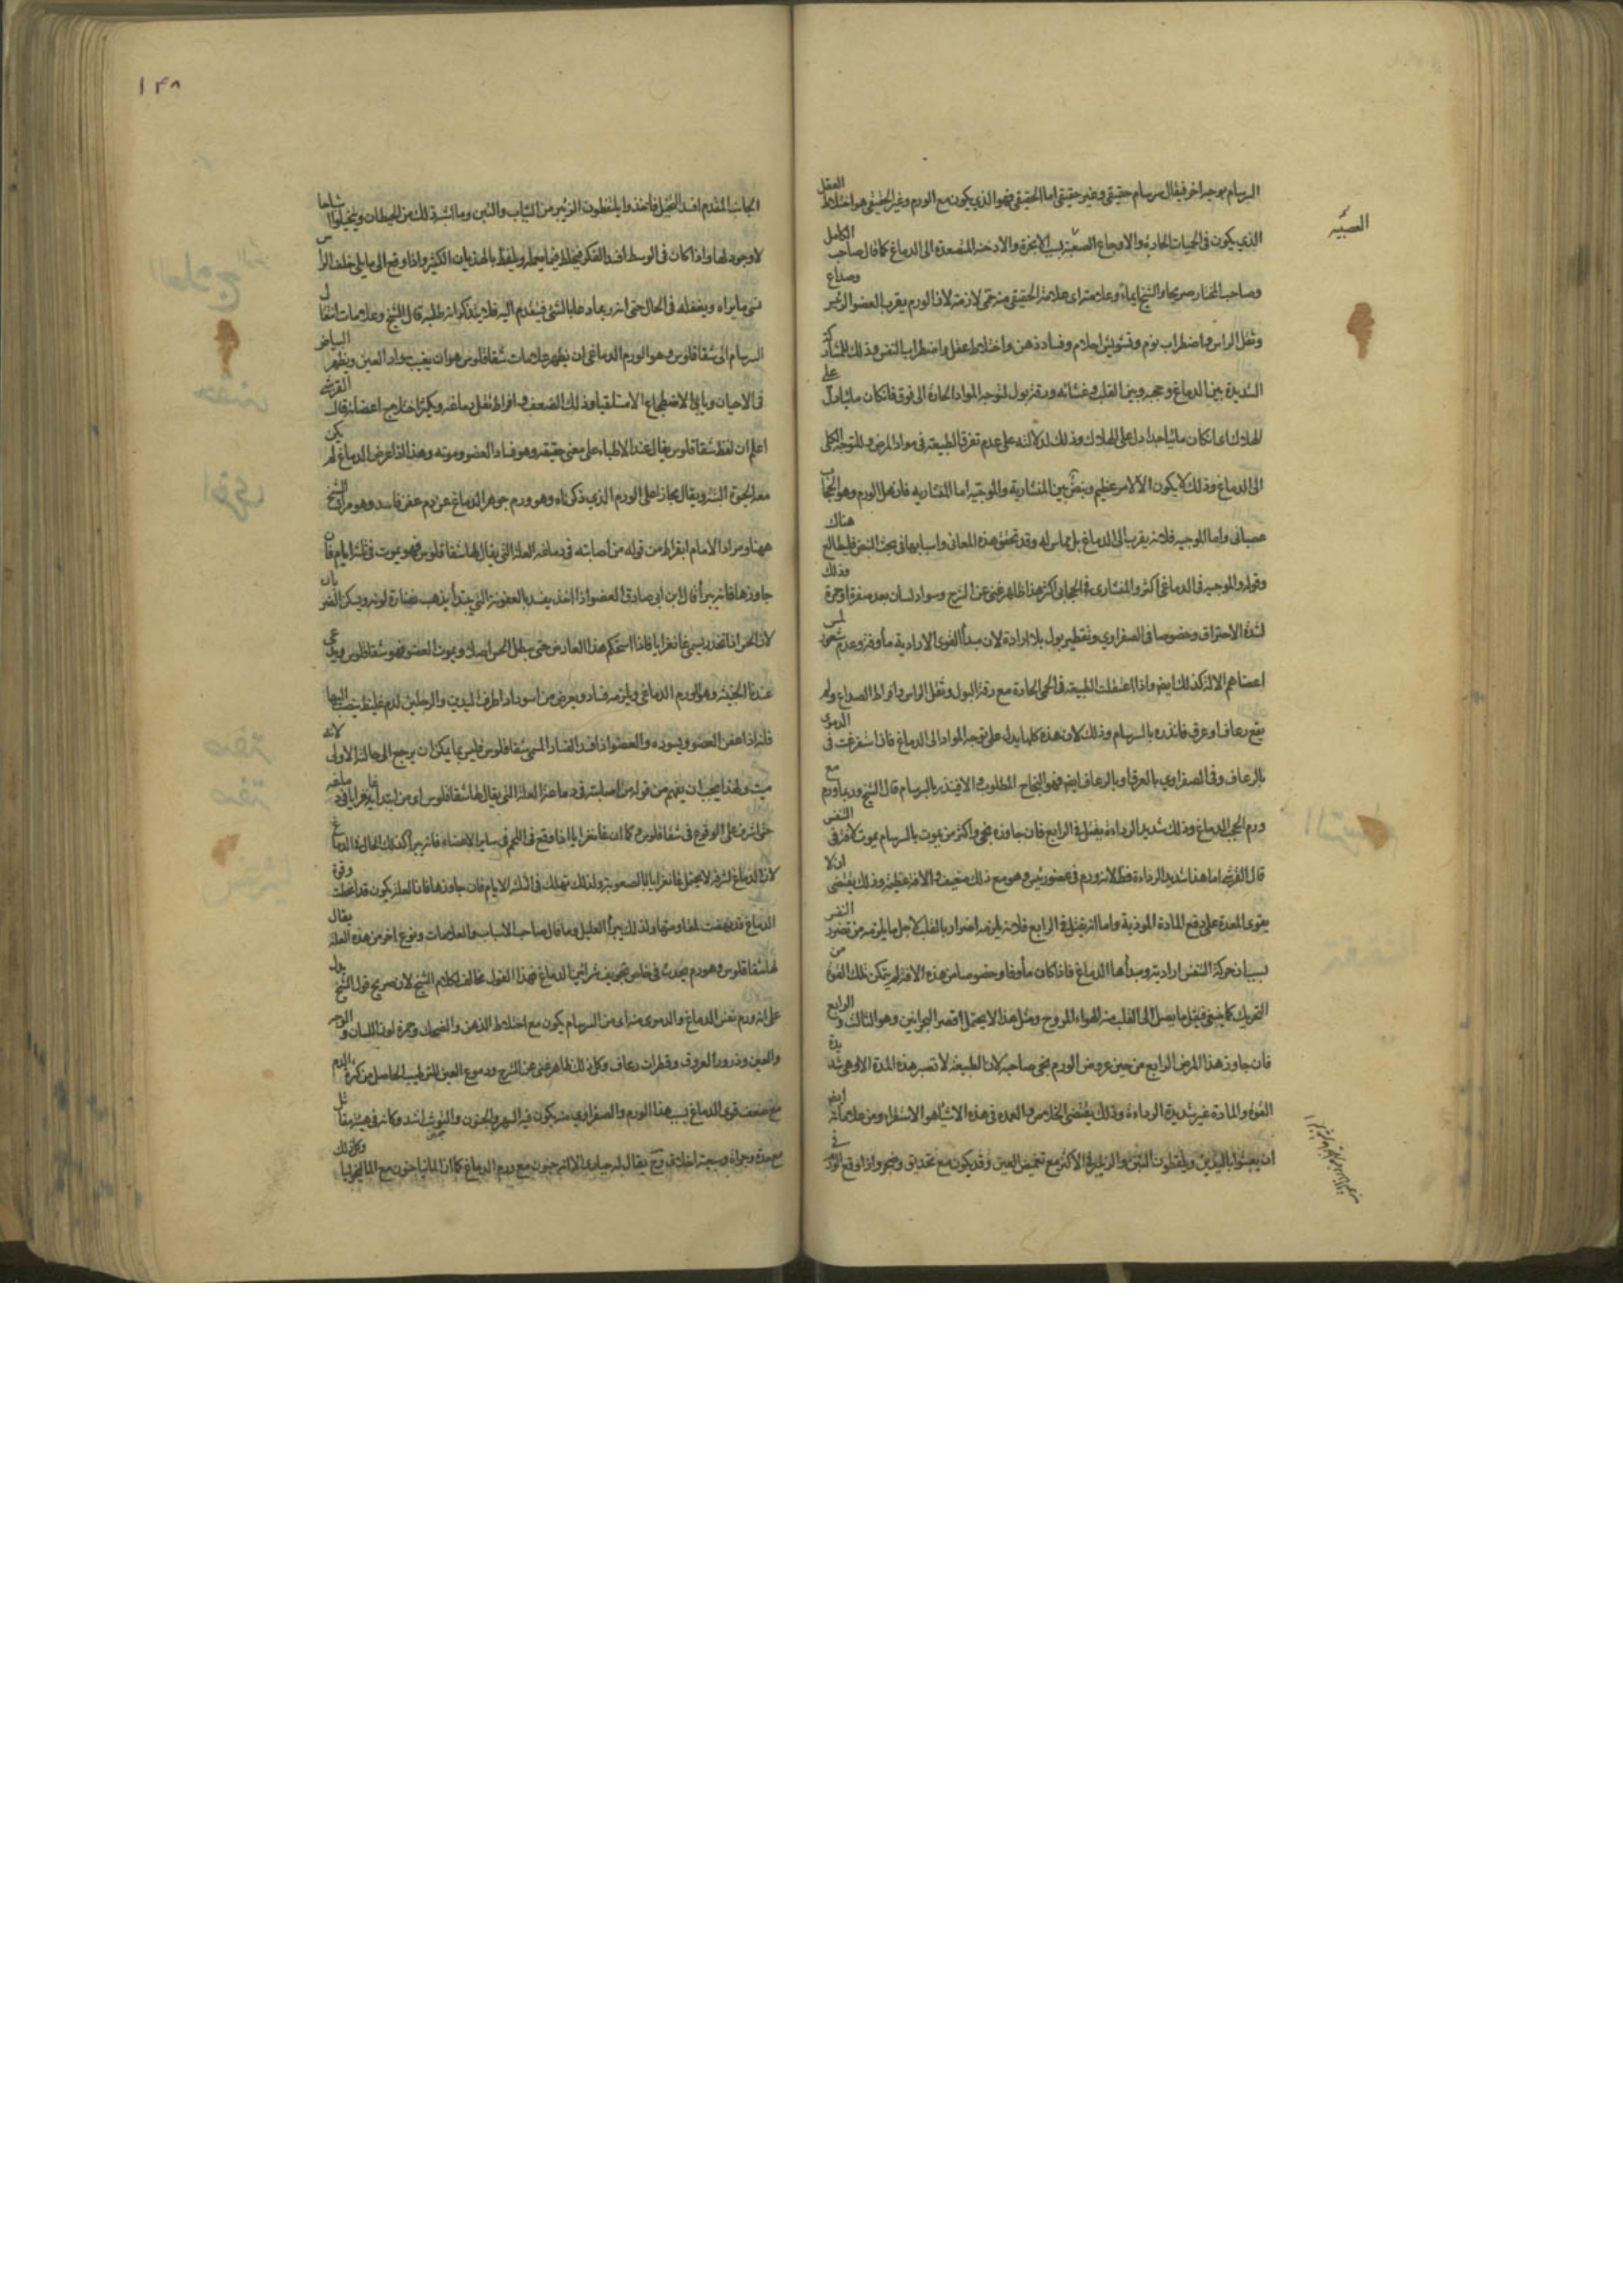 السرسام بوجه اخر فيقال سرسام حقيقي وغير حقيقي اما الحقيقي فهو الذي يكون مع الورم وغير الحقيقي هو اختلاط العقل
الذي يكون في الحميات الحارة والاوجاع الصعبة بسبب الابخرة والادخنة المتصعدة الى الدماغ كما قال صاحب الكامل
وصاحب المختار صريحا والشيخ ايماء وعلامته اى علامة الحقيقي منه حمى لازمة لان الورم بقرب العضو الرئيس وصداع
وثقل الراس واضطراب نوم وتشويش احلام وفساد ذهن واختلاط عقل واضطراب النفس وذلك للمشاركة
الشديدة بين الدماغ وحجبه وبين القلب وغشائه ورقة بول لتوجه المواد الحارة الى فوق فان كان مائيا دل على
الهلاك اى ان كان مائيا جدا دل على الهلاك وذلك لدلالته على عدم تفرق الطبيعة في مواد المرض وللتوجه الكلى
الى الدماغ وذلك لا يكون الا لامر عظيم ونبض بين المنشارية والموجية اما المنشارية فلان محل الورم وهو الحجاب
عصبانى واما الموجية فلانه يقرب الى الدماغ بل مماس له وقد تحقق هذه المعانى واسبابها في بحث النبض فليطالع هناك
وقوله والموجيه في الدماغي اكثر والمنشارى في الحجابى اكثر هذا ظاهر غنى عن الشرح وسواد لسان بعد صفرة او حمرة وذلك
لشدة الاحتراق وخصوصا في الصفراوي وتقطير بول بلا ارادة لان مبدأ القوى الارادية مأوفة وعدم شعور لمس
اعضاهم الالم كذلك ايضا واذا اعتقلت الطبيعة في الحمى الحادة مع رقة البول وثقل الراس وافراط الصداع ولم
يقع رعاف او عرق فانذره بالسرسام وذلك لان هذه كلها يدل على توجه المواد الى الدماغ فاذا استفرغت في الدموى
بالرعاف وفي الصفراوي بالعرق او بالرعاف ايضا فهو النجاح المطلوب والا فينذر بالسرسام قال الشيخ وربما ورم مع
ورم الحجب الدماغ وذلك شديد الرداءة يقتل في الرابع فان جاوزه نجى واكثر من يموت بالسرسام يموت لافة في النفس
قال القرشى اما هذا شديد الرداءة فظ لانه ورم في عضو رئيس وهو مع ذلك ضعيف والافة عظيمة وذلك يقتضى ان لا
يقوى المعدة على دفع المادة الموذية واما انه يقتل في الرابع فلانه يلزمه اضرار بالقلب لاجل ما يلزمه من تضرر النفس
بسبب ان حركة التنفس ارادية ومبدأها الدماغ فاذا كان مأوفا وخصوصا من هذه الافة لم يتمكن تلك القوة من
التحريك كما ينبغى فيقل ما يصل الى القلب من الهواء المروح ومثل هذا لا يحتمل اقصر البحرانين وهو الثالث والرابع
فان جاوز هذا المرض الرابع من حين عروض الورم نجى صاحبه لان الطبيعة لا تصبر هذه المدة الا وهى شديدة
القوة والمادة غير شديدة الرداءة وذلك يقتضى الخلاص والعمده في هذه الاشياء هو الاستقراء ومن علاماته ايضا
ان يعبثوا باليدين ويلقطون التبن والزئبر في الاكثر مع تغميض العين وقد يكون مع تحديق وضجر واذا وقع الورم في
١٤٨
الجانب المقدم افسد التخيل فاخذوا يلقطون الزئبر من الثياب والتبن وما اشبه ذلك من الحيطان ويتخيلوا اشباحا
لا وجود لها واذا كان في الوسط افسد الفكر فيخلط فيما يعمله ويلفظ بالهذيان الكثير واذا وقع الى ما يلي خلف الراس
نسى ما يراه ويفعله في الحال حتى انه ربما دعا بالشئ فيقدم اليه فلا يتذكر انه طلبه قال الشيخ وعلامات انتقال
السرسام الى شقاقلوس وهو الورم الدماغي ان يظهر علامات شقاقلوس هو ان يغيب سواد العين ويظهر البياض
في الاحيان ويابى الاضطجاع الا مستلقيا وذلك لضعف وافراط ثقل دماغه ويكثر اختلاج اعضائه قال القرشى
اعلم ان لفظ شقاقلوس يقال عند الاطباء على معنى حقيقة وهو فساد العضو وموته وهذا اذا عرض الدماغ لم يكن
معه الحيوة البتة ويقال مجازا على الورم الذي ذكرناه وهو ورم جوهر الدماغ عن دم عفن فاسد وهو مراد الشيخ
ههنا ومراد الامام ابقراط من قوله من اصابته في دماغه العلة التي يقال لها شقاقلوس فهو يموت في ثلثة ايام فان
جاوزها فانه يبرأ قال ابن ابى صادق العضو اذا اخذ يفسد بالعفونة التي يبتدأ يذهب نضارة لونه ويسكن الضربان
لان الحس اذا تخدر يسمى غانغرايا فاذا استحكم هذا العارض حتى يبطل الحس اصلا ويموت العضو فهو شقاقلوس ويدعى
فلانه اذا عفن العضو ويسوده والعضو اذا فسد الفساد المسمى شقاقلوس فليس ما يمكن ان يرجع الى حالته الاولى لانه
ميت ولهذا يجب ان يفهم من قوله من اصابته في دماغه العلة التي يقال لها شقاقلوس اى من ابتدأ به غانغرايا في دماغه
حتى اشرف على الوقوع في شقاقلوس وكما ان غانغرايا اذا وقع في اللحم في ساير الاعضاء فانه يبرأ كذلك الحال في الدماغ
لان الدماغ لشرفه لا يحتمل غانغرايا الا بالصعوبة ولذلك تهلك في الثلثة الايام فان جاوزها فان العلة يكون قد انحطت وقوة
الدماغ قد نهضت لمقاومتها ولذلك يبرأ العليل وما قال صاحب الاسباب والعلامات ونوع اخر من هذه العلة يقال
لها شقاقلوس وهو ورم يحدث في خاص تجويف شرائين الدماغ فهذا القول مخالف لكلام الشيخ لان صريح قول الشيخ يدل
على انه ورم نفس الدماغ والدموى منه اى من السرسام يكون مع اختلاط الذهن والضحك وحمرة لون اللسان والوجه
والعين ودرور العروق وقطرات رعاف وكل ذلك ظاهر غنى عن الشرح ودموع العين للترطيب الحاصل من كثرة الدم
مع ضعف قوى الدماغ بسبب هذا الورم والصفراوي منه يكون فيه السهر والجنون والتوثب اشد وكانه في هيئة مقاتل